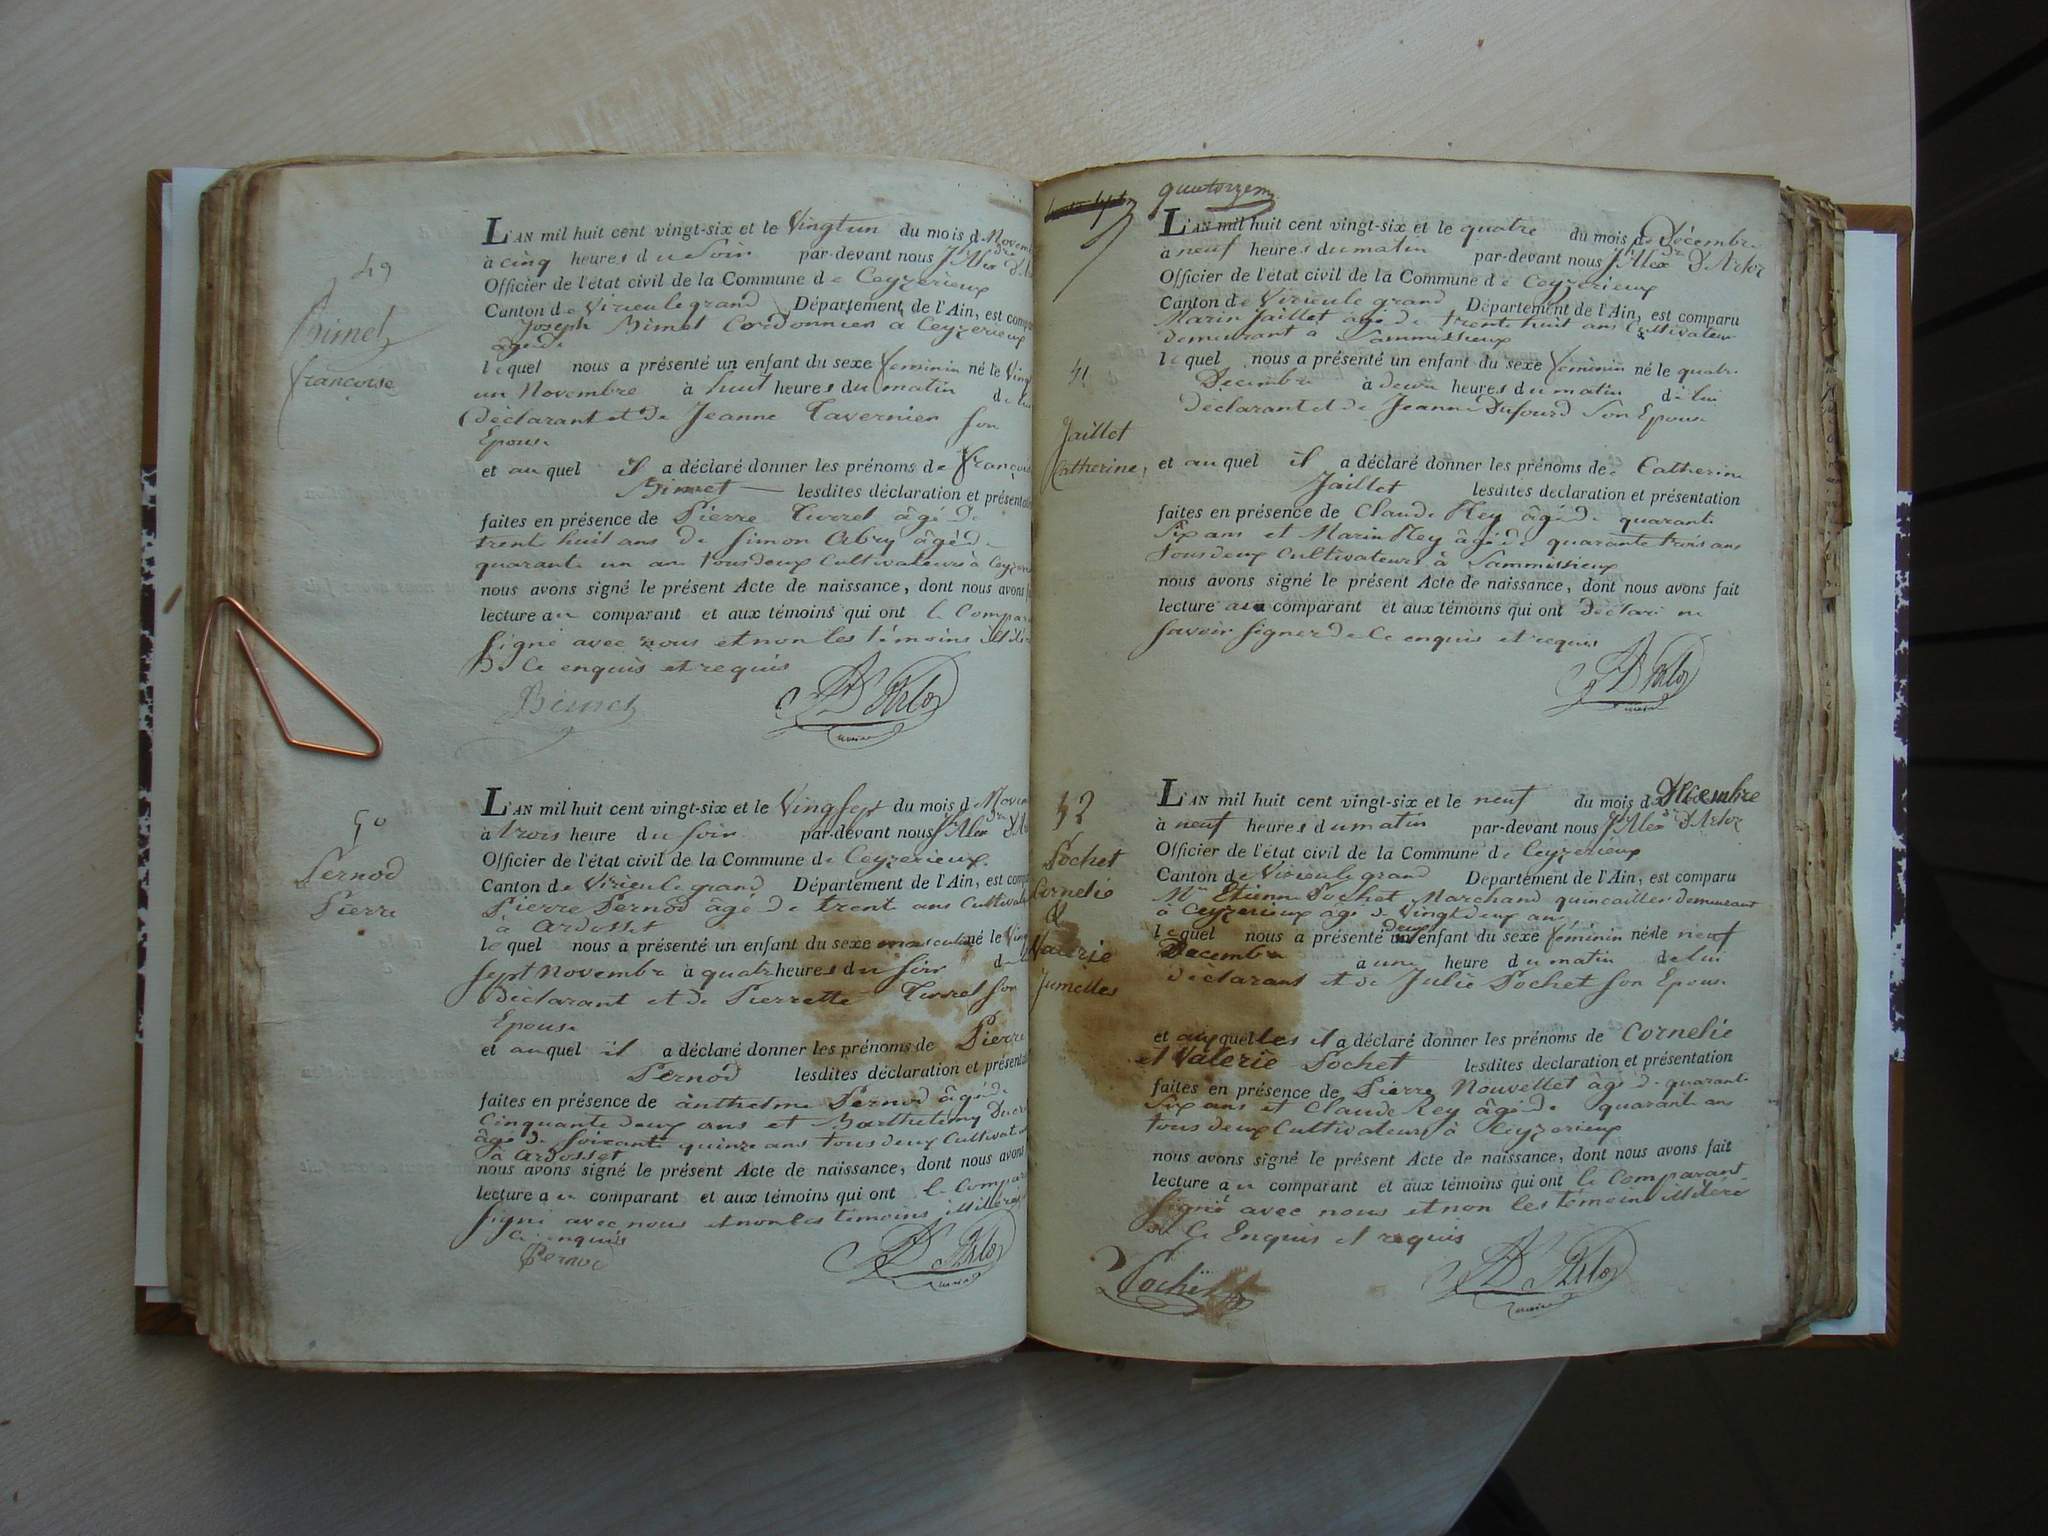 49
Bimet
françoise
L'AN mil huit cent vingt-six et le Vingt un du mois d
à cinq heures du soir par-devant nous J. Alex
Officier de l'état civil de la Commune de Ceyzerieux
Canton de Virieu le grand Département de l'Ain, est
Joseph Bimet Cordonnier à Ceyzerieux
âgé de
lequel nous a présenté un enfant du sexe feminin né le
un Novembre à huit heures du matin
déclarant et de Jeanne Tavernier son
Epouse
et auquel il a déclaré donner les prénoms de
Bimet lesdites déclaration et
faites en présence de Pierre Turrel âgé de
trente huit ans de Simon Abry âgé de
quarante un ans tous deux Cultivateurs à
nous avons signé le présent Acte de naissance, dont nous avons
lecture au comparant et aux témoins qui ont le
signé avec nous et non les témoins
De Ce enquis et requis
Bimet
50
Pernod
Pierre
L'AN mil huit cent vingt-six et le Vingt sept du mois d
à trois heure du soir par-devant nous J. Alex
Officier de l'état civil de la Commune de Ceyzerieux
Canton de Virieu le grand Département de l'Ain, est
Pierre Pernod âgé de trente ans
à Ardosset
lequel nous a présenté un enfant du sexe masculin né le
sept Novembre à quatre heures du soir
Déclarant et de Pierrette Turrel son
Epouse
et auquel il a déclaré donner les prénoms de Pierre
Pernod lesdites déclaration et
faites en présence de anthelme Pernod âgé de
Cinquante deux ans et Barthelemy
âgé de soixante quinze ans tous deux
à Ardosset
nous avons signé le présent Acte de naissance, dont nous avons
lecture au comparant et aux témoins qui ont le
signé avec nous et non les témoins
Ce enquis
Pernod
quatorzem
L'AN mil huit cent vingt-six et le quatre du mois de Décembre
à neuf heures du matin par-devant nous J. Alex D'Arloz
Officier de l'état civil de la Commune de Ceyzerieux
Canton de Virieu le grand Département de l'Ain, est comparu
Marin Jaillet âgé de trente huit ans Cultivateur
demeurant à Sammissieux
lequel nous a présenté un enfant du sexe feminin né le quatre
Décembre à deux heures du matin de lui
déclarant et de Jeanne Dufourd son Epouse
51
Jaillet
Catherine
et auquel il a déclaré donner les prénoms de Catherine
Jaillet lesdites déclaration et présentation
faites en présence de Claude Rey âgé de quarante
six ans et Marin Rey âgé de quarante trois ans
tous deux Cultivateurs à Sammissieux
nous avons signé le présent Acte de naissance, dont nous avons fait
lecture au comparant et aux témoins qui ont déclaré ne
savoir signer de Ce enquis et requis
52
Pochet
Cornelie
&
Valerie
Jumelles
L'AN mil huit cent vingt-six et le neuf du mois de Décembre
à neuf heures du matin par-devant nous J. Alex D'Arloz
Officier de l'état civil de la Commune de Ceyzerieux
Canton de Virieu le grand Département de l'Ain, est comparu
Mr Etienne Pochet Marchand quincailler demeurant
à Ceyzerieux âgé de Vingt deux ans
lequel nous a présenté deux enfant du sexe féminin né le neuf
Decembre à une heure du matin de lui
déclarant et de Julie Pochet son Epouse
et auxquelles il a déclaré donner les prénoms de Cornelie
et Valerie Pochet lesdites déclaration et présentation
faites en présence de Pierre Nouvellet âgé de quarante
six ans et Claude Rey âgé de quarante ans
tous deux Cultivateurs à Ceyzerieux
nous avons signé le présent Acte de naissance, dont nous avons fait
lecture au comparant et aux témoins qui ont le comparant
signé avec nous et non les témoins
de Ce Enquis et requis
Pochet